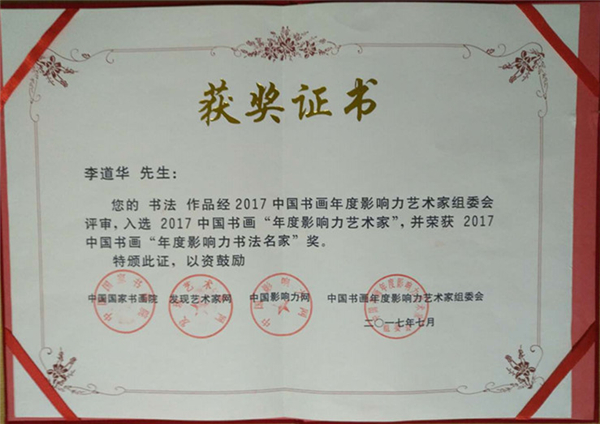 获奖证书
李道华 先生:
您的 书法 作品经2017中国书画年度影响力艺术家组委会
评审,入选 2017中国书画“年度影响力艺术家”,并荣获 2017
中国书画“年度影响力书法名家”奖。
特颁此证,以资鼓励
中国国家书画院 发现艺术家网 中国影响力网 中国书画年度影响力艺术家组委会
二〇一七年七月